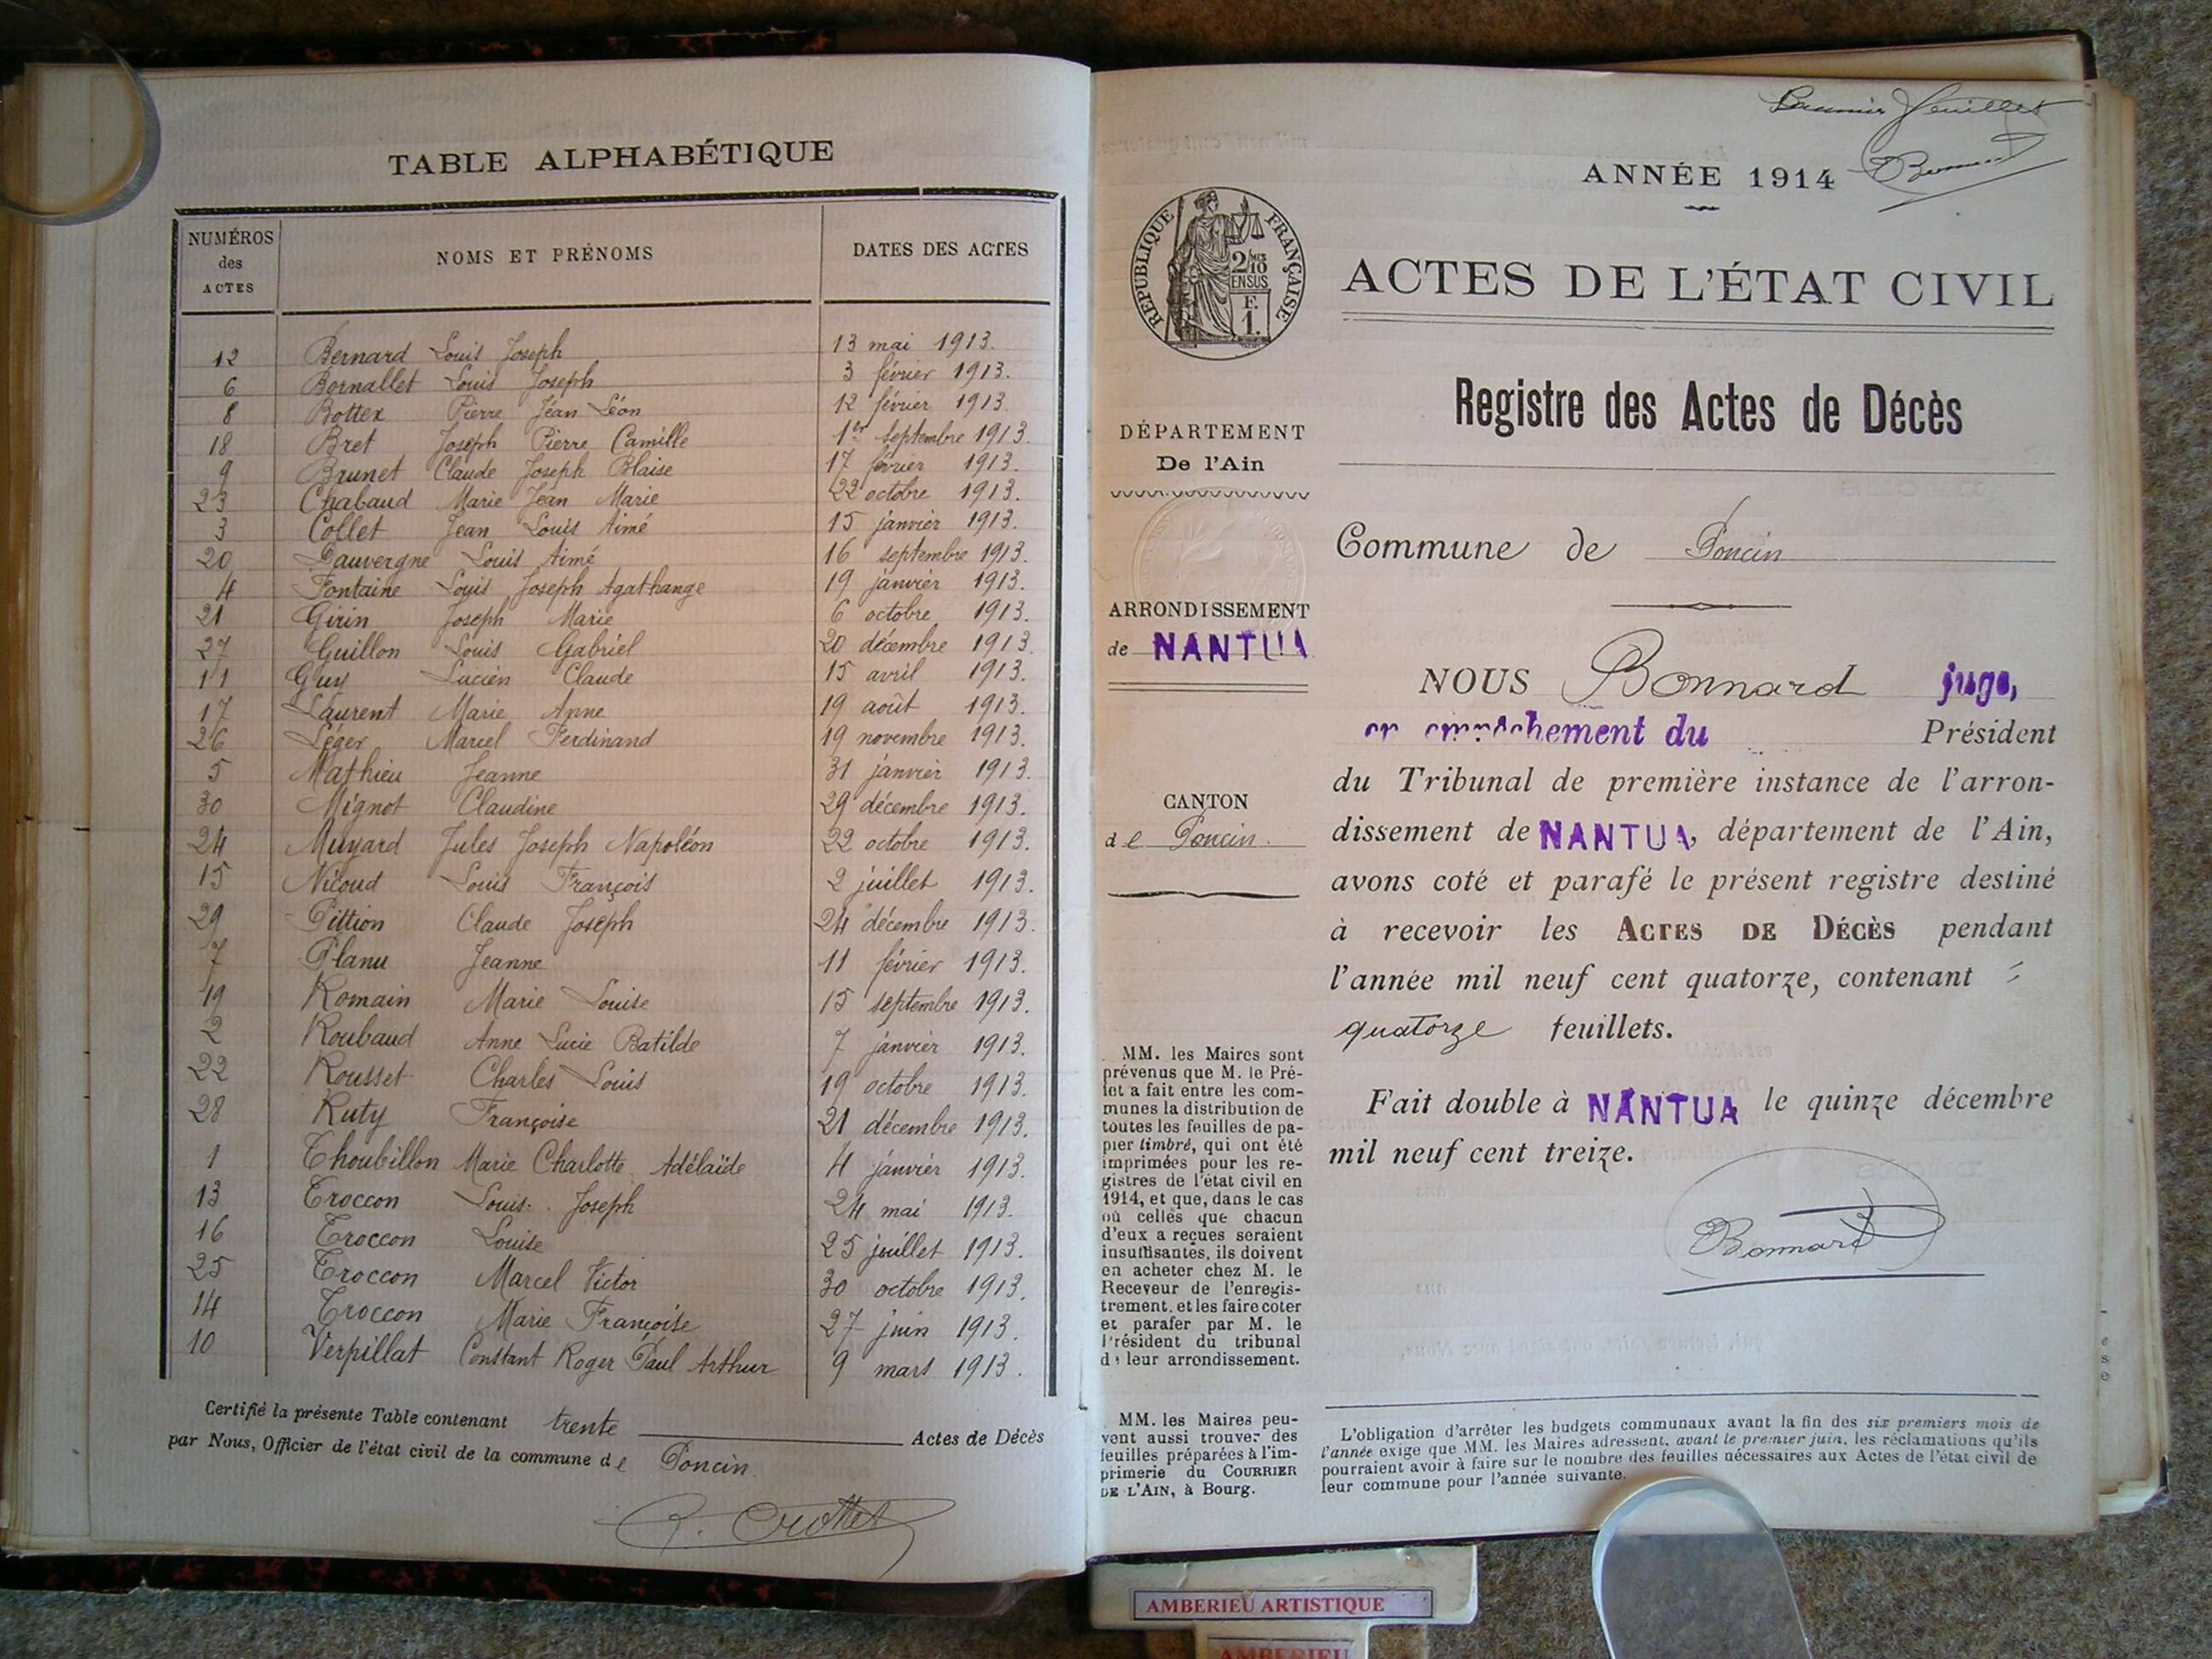 TABLE ALPHABÉTIQUE
NUMÉROS des ACTES NOMS ET PRÉNOMS DATES DES ACTES
12 Bernard Louis Joseph 13 mai 1913.
6 Bornallet Louis Joseph 3 février 1913.
8 Bottex Pierre Jean Léon 12 février 1913.
18 Bret Joseph Pierre Camille 1er septembre 1913.
9 Brunet Claude Joseph Blaise 17 février 1913.
23 Chabaud Marie Jean Marie 22 octobre 1913.
3 Collet Jean Louis Aimé 15 janvier 1913.
20 Dauvergne Louis Aimé 16 septembre 1913.
4 Fontaine Louis Joseph Agathange 19 janvier 1913.
21 Girin Joseph Marie 6 octobre 1913.
27 Guillon Louis Gabriel 20 décembre 1913.
11 Guy Lucien Claude 15 avril 1913.
17 Laurent Marie Anne 19 août 1913.
26 Léger Marcel Ferdinand 19 novembre 1913.
5 Mathieu Jeanne 31 janvier 1913.
30 Mignot Claudine 29 décembre 1913.
24 Muyard Jules Joseph Napoléon 22 octobre 1913.
15 Nicoud Louis François 2 juillet 1913.
29 Pittion Claude Joseph 24 décembre 1913.
7 Planu Jeanne 11 février 1913.
19 Romain Marie Louise 15 septembre 1913.
2 Roubaud Anne Lucie Batilde 7 janvier 1913.
22 Rousset Charles Louis 19 octobre 1913.
28 Ruty Françoise 21 décembre 1913.
1 Thoubillon Marie Charlotte Adélaïde 4 janvier 1913.
13 Troccon Louis Joseph 24 mai 1913.
16 Troccon Louise 25 juillet 1913.
25 Troccon Marcel Victor 30 octobre 1913.
14 Troccon Marie Françoise 27 juin 1913.
10 Verpillat Constant Roger Paul Arthur 9 mars 1913.
Certifié la présente Table contenant trente Actes de Décès
par Nous, Officier de l'état civil de la commune de Poncin.
Crottet
Premier feuillet
Bonnard
ANNÉE 1914
RÉPUBLIQUE FRANÇAISE
2/10 MES
EN SUS
F.
1.
ACTES DE L'ÉTAT CIVIL
Registre des Actes de Décès
DÉPARTEMENT
De l'Ain
Commune de Poncin
ARRONDISSEMENT
de NANTUA
CANTON
de Poncin.
NOUS Bonnard juge,
en empêchement du Président
du Tribunal de première instance de l'arron-
dissement de NANTUA, département de l'Ain,
avons coté et parafé le présent registre destiné
à recevoir les ACTES DE DÉCÈS pendant
l'année mil neuf cent quatorze, contenant
quatorze feuillets.
Fait double à NANTUA le quinze décembre
mil neuf cent treize.
Bonnard
MM. les Maires sont
prévenus que M. le Pré-
fet a fait entre les com-
munes la distribution de
toutes les feuilles de pa-
pier timbré, qui ont été
imprimées pour les re-
gistres de l'état civil en
1914, et que, dans le cas
où celles que chacun
d'eux a reçues seraient
insuffisantes, ils doivent
en acheter chez M. le
Receveur de l'enregis-
trement, et les faire coter
et parafer par M. le
Président du tribunal
de leur arrondissement.
MM. les Maires peu-
vent aussi trouver des
feuilles préparées à l'im-
primerie du COURRIER
DE L'AIN, à Bourg.
L'obligation d'arrêter les budgets communaux avant la fin des six premiers mois de
l'année exige que MM. les Maires adressent, avant le premier juin, les réclamations qu'ils
pourraient avoir à faire sur le nombre des feuilles nécessaires aux Actes de l'état civil de
leur commune pour l'année suivante.
AMBERIEU ARTISTIQUE
AMBERIEU